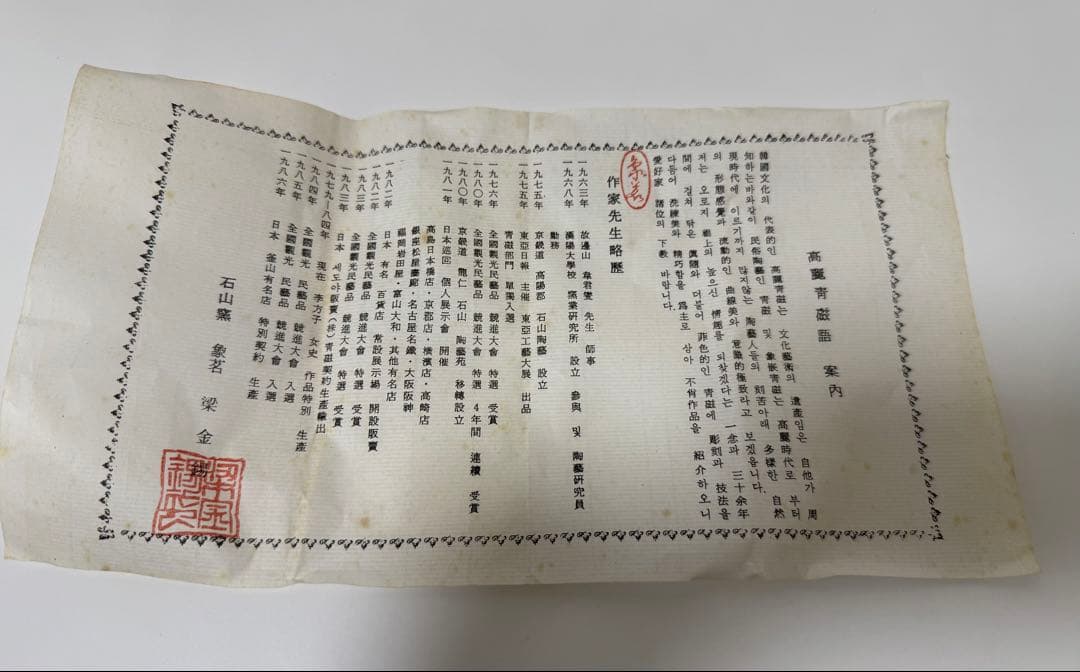 高麗青磁語 案內
韓國文化의 代表的인 高麗青磁는 文化藝術의 遺產임은 自他가 周
知하는바와같이 民俗陶藝인 青磁 및 象嵌青磁는 高麗時代로 부터
現時代에 이르기까지 많지않는 陶藝人들의 刻苦아래 多樣한 自然
의 形態感覺과 流動的인 曲線美와 意築的極致라고 보겠읍니다.
저는 오로지 祖上의 높으신 情趣를 되찾겠다는 一念과 三十余年
間에 걸쳐 닦은 眞髓와 더불어 菲色的인 青磁에 彫刻과 技法을
다듬어 洗練美와 精巧함을 爲主로 삼아 不肖作品을 紹介하오니
愛好家 諸位의 下敎 바랍니다.
作家先生略歷
一九六三年 故邊山 韋君燮 先生 師事
一九六八年 漢陽大學校 窯業研究所 設立 參與 및 陶藝研究員
勤務
一九七五年 京畿道 高陽郡 石山陶藝 設立
一九七五年 東亞日報 主催 東亞工藝大展 出品
青磁部門 單獨入選
一九七六年 全國觀光民藝品 競進大會 特選 受賞
一九八〇年 全國觀光民藝品 競進大會 特選 4年間 連續 受賞
一九八〇年 京畿道 龍仁 石山 陶藝苑 移轉設立
一九八一年 日本巡回 個人展示會 開催
高島日本橋店・京都店・橫濱店・高崎店
銀座松屋畫廊・名古屋名鐵・大阪阪神
福岡岩田屋・富山大和・其他有名店
一九八二年 日本 有名 百貨店 常設展示場 開設販賣
一九八二年 全國觀光民藝品 競進大會 特選 受賞
一九八三年 全國觀光民藝品 競進大會 特選 受賞
一九八三年 日本 세도야販賣(株)青磁契約生產輸出
一九七九—八四年 現在 李方子 女史 作品特別 生產
一九八四年 全國觀光 民藝品 競進大會 入選
一九八五年 全國觀光 民藝品 競進大會 入選
一九八六年 日本 釜山有名店 特別契約 生產
石山窯 象茗 梁 金